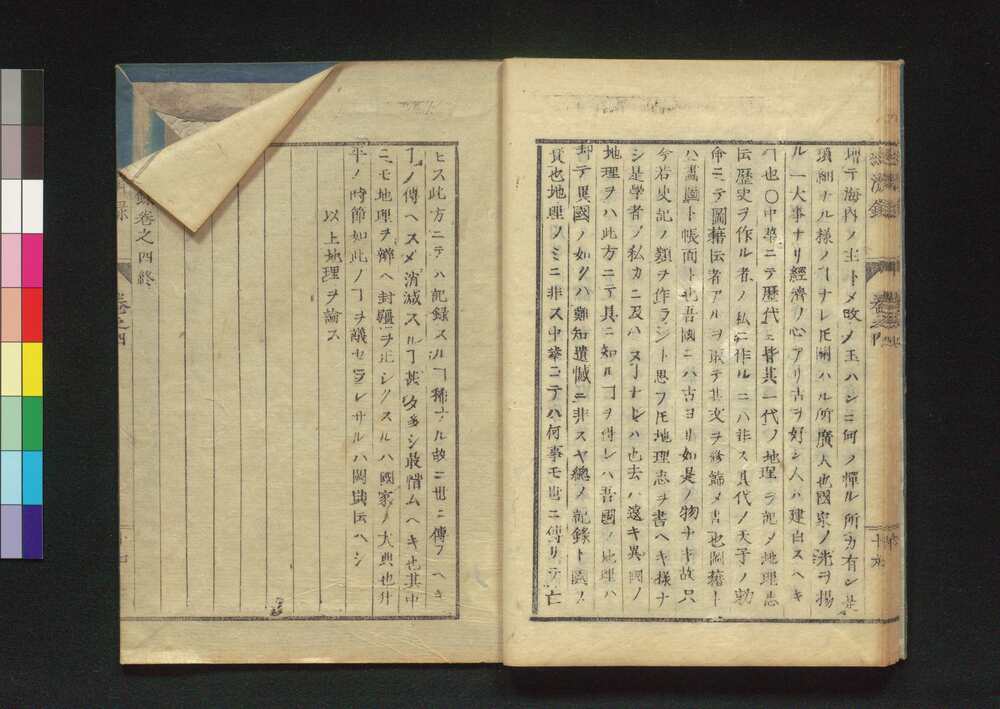 増テ海内ノ主トメ政ノ玉ハンニ何ノ憚ル所カ有ン是
瑣細ナル様ノヿナレ𪜈関ハル所廣大也國家ノ光ヲ揚
ル一大事ナリ經濟ノ心アリ古ヲ好ン人ハ建白スヘキ
ヿ也〇中華ニテ歴代ニ皆其一代ノ地理ヲ記メ地理志
ト云歴史ヲ作ル者ノ私ニ作ルニハ非ス其代ノ天子ノ勅
命ニテ圖藉云者アルヲ取テ其文ヲ修飾メ書也圖藉ト
ハ畵圖ト帳面ト也吾國ニハ古ヨリ如是ノ物ナキ故只
今若史記ノ類ヲ作ラント思フ𪜈地理志ヲ書ヘキ様ナ
シ是學者ノ私カニ及ハヌヿナレハ也去ハ遠キ異國ノ
地理ヲハ此方ニテ具ニ知ルヿヲ得レハ吾國ノ地理ハ
却テ異國ノ如クハ難知遺憾ニ非スヤ總メ記録ト圖ハ
貴也地理ノミニ非ス中華ニテハ何事モ世ニ傳リテ亡
ヒス此方ニテハ記録スルヿ稀ナル故ニ世ニ傳フヘキ
ヿノ傳ヘスメ消滅スルヿ甚タ多シ最惜ムヘキ也其中
ニモ地理ヲ辨ヘ封疆ヲ正シクスルハ國家ノ大典也升
平ノ時節如此ノヿヲ議セラレサルハ闕典ト云ハン
以上地理ヲ論ス
録巻之四終
巻之四